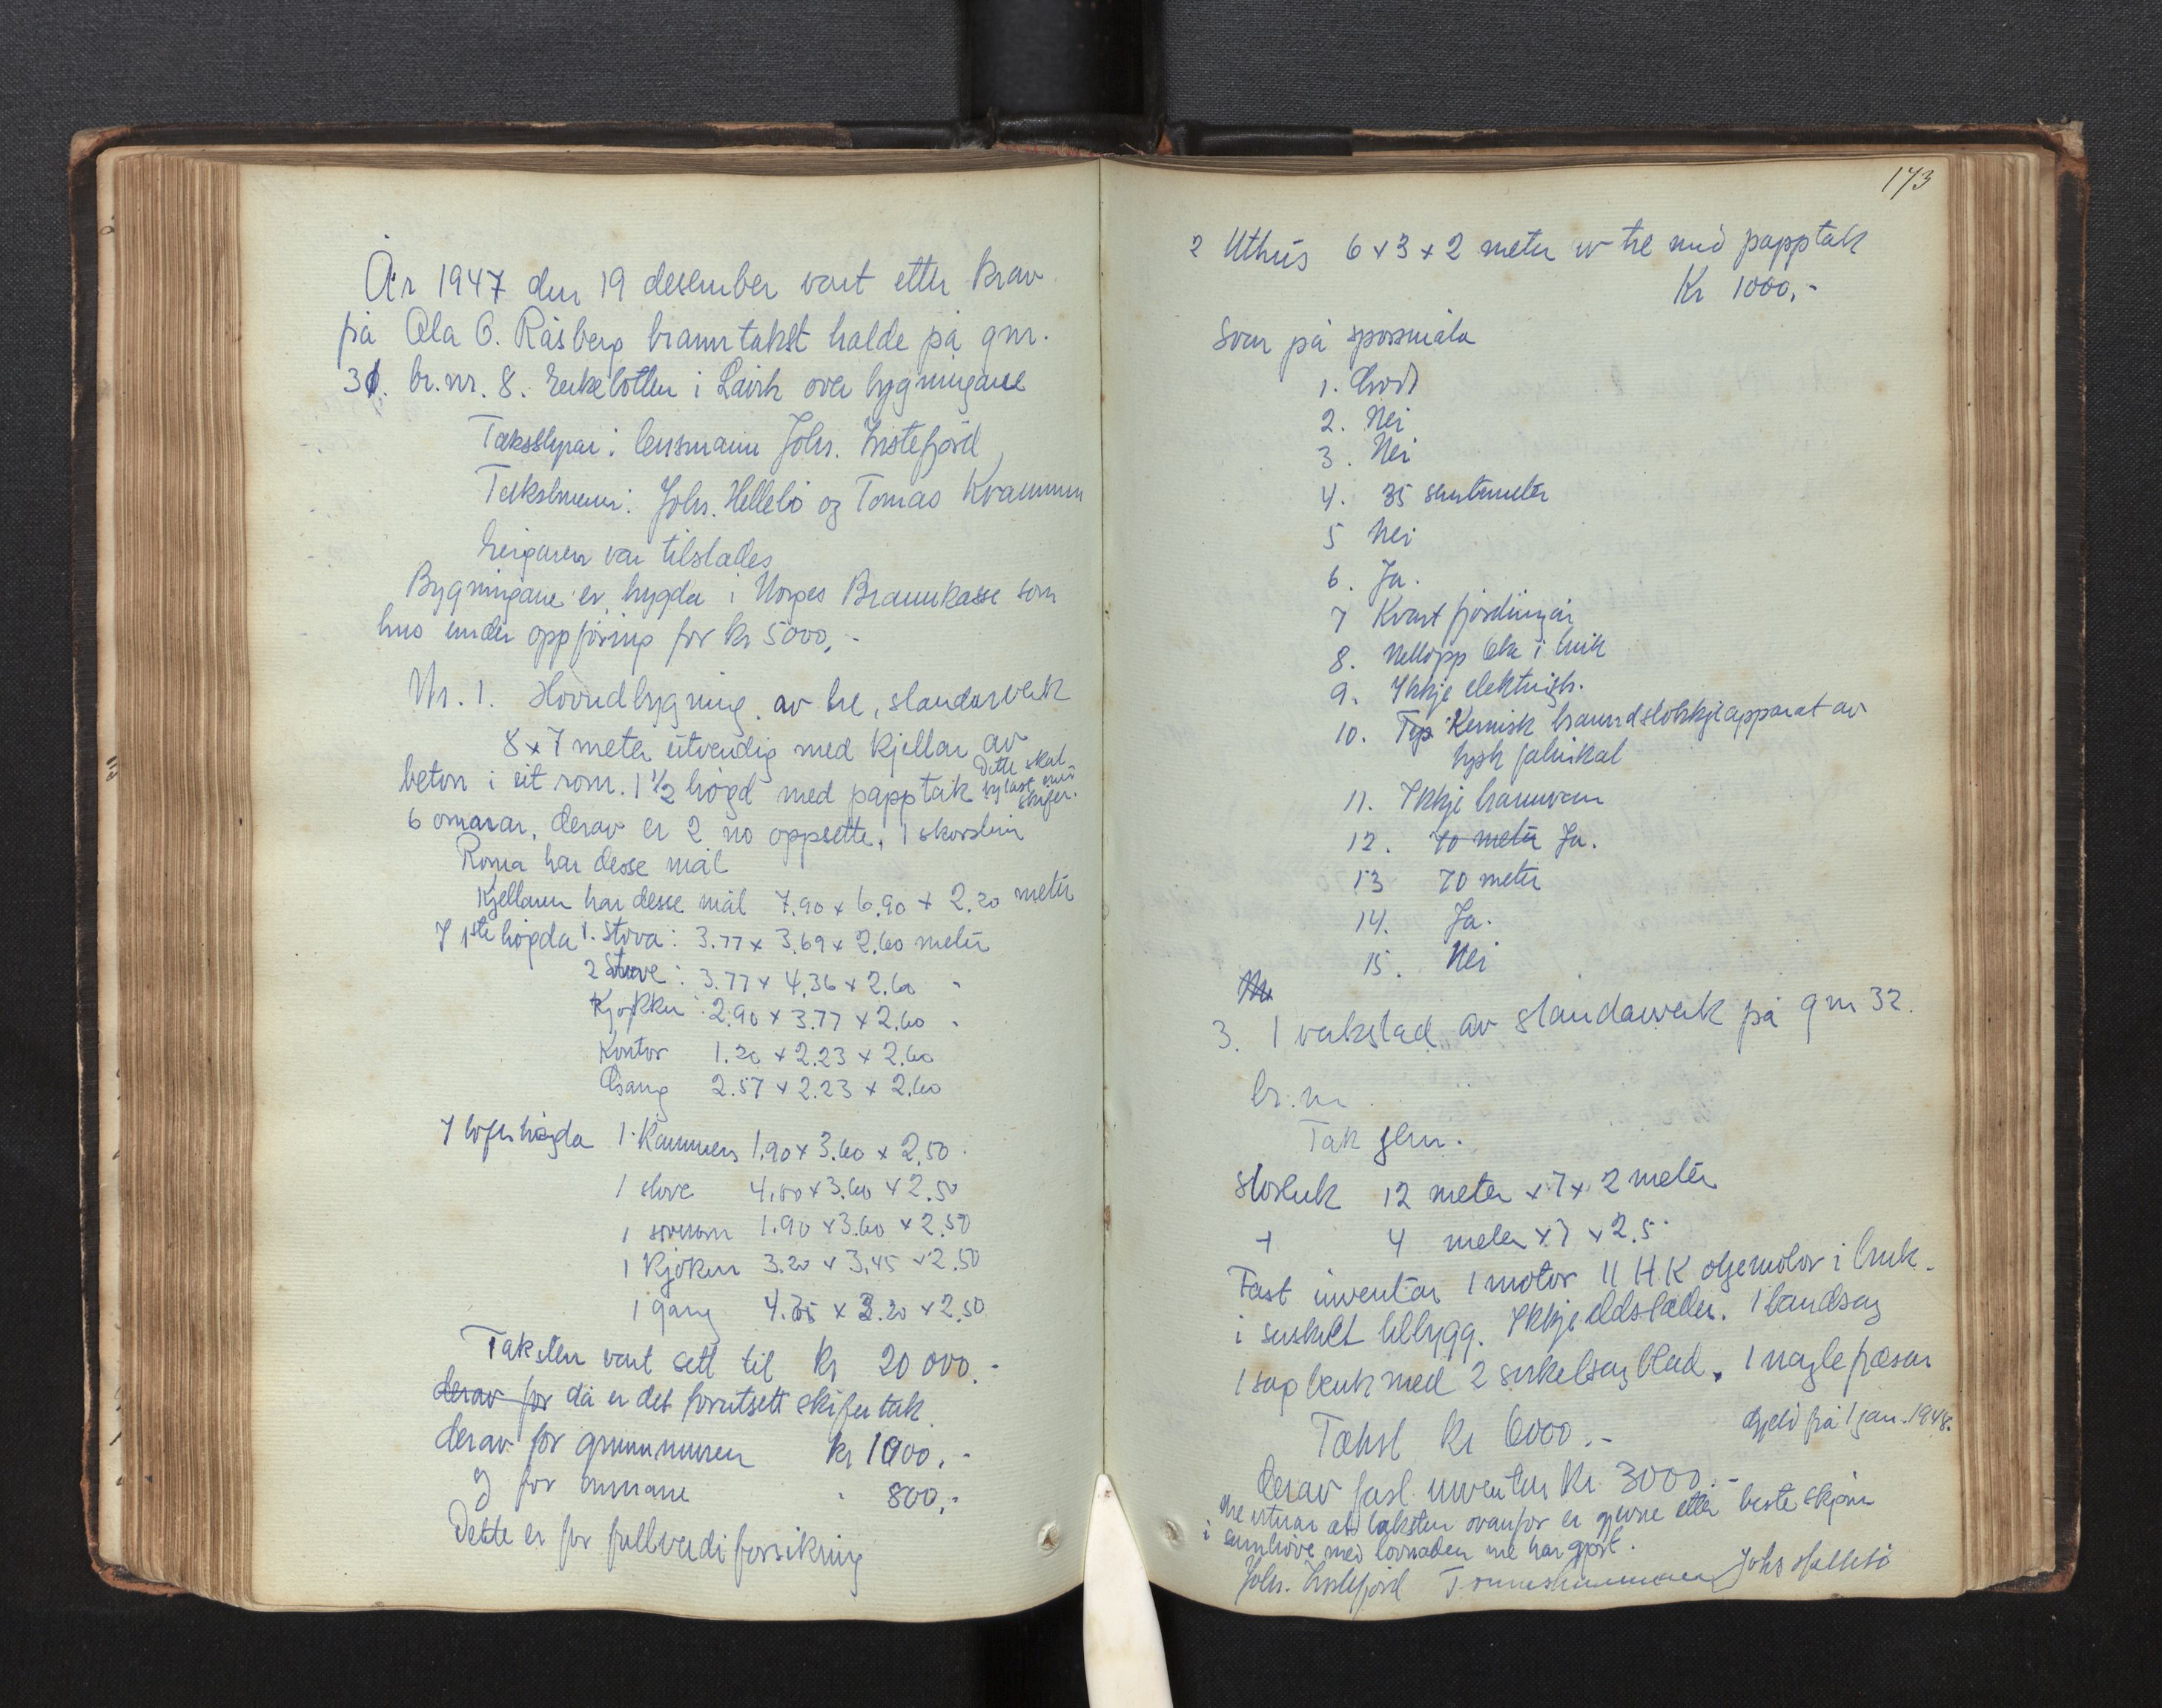 År 1947 den 19 desember vart etter krav
frå Ola O. Råsberg branntakst halde på gnr.
31. br.nr. 8. i Lavik over bygningane
Takststyrar: lensmann Johs. Instefjord
Takstmenn: Johs. Hellebö og Tomas Kvammen
Eigaren var tilstades
Bygningane er trygda i Norges Brannkasse som
hus under oppföring for kr 5000,-
Nr. 1. Hovudbygning av tre, standarverk
8 x 7 meter utvendig med kjellar av
beton i eit rom. 1 1/2 högd med papptak Dette skal
bytast med
skifer.
6 omnar, derav er 2 no oppsette, 1 skorstein
Roma har desse mål
Kjellaren har desse mål 7.90 x 6.90 x 2.20 meter
I 1ste högda 1. Stova: 3.77 x 3.69 x 2.60 meter
2 Stove: 3.77 x 4.36 x 2.60 "
Kjökken: 2.90 x 3.77 x 2.60 "
Kontor 1.20 x 2.23 x 2.60
Gang 2.57 x 2.23 x 2.60
I loftshögda 1. Kammers 1.90 x 3.60 x 2.50
1 stove 4.00 x 3.60 x 2.50
1 soverom 1.90 x 3.60 x 2.50
1 Kjöken 3.20 x 3.45 x 2.50
1 gang 4.35 x 2.20 x 2.50
Taksten vart sett til kr 20 000.-
derav for då er det forutsett skifertak
derav for grunnmuren kr 1000.-
og for omnane " 800,-
Dette er for fullverdiforsikring
173
2 Uthus 6 x 3 x 2 meter av tre med papptak
Kr 1000,-
Svar på spörsmåla
1. Godt
2. Nei
3. Nei
4. 35 sentimeter
5 Nei
6. Ja.
7 Kvart fjordungår
8. Nellopp i bruk
9. Ikkje elektrisk.
10. Kemisk brannslökkjeapparat av
tysk fabrikat
11. Ikkje brannvern
12. 70 meter Ja.
13 70 meter
14. Ja.
15. Nei
Nr
3. 1 verkstad av standarverk på gnr 32.
br.nr
Tak
storleik 12 meter x 7 x 2 meter
+ 4 meter x 7 x 2.5
Fast inventar 1 motor 11 HK oljemotor i bruk.
i serskilt tilbygg. Ikkje eldstader. 1 bandsag
1 sagbenk med 2 sirkelsagblad, 1 naglepresar
Takst kr 6000.- Gjeld frå 1 jan. 1948.
derav fast inventar kr. 3000.-
Me vitnar at taksten ovanfor er gjevne etter beste skjön
i samhöve med lovnaden me har gjort.
Johs. Instefjord Tomas Kvammen Johs Hellebö